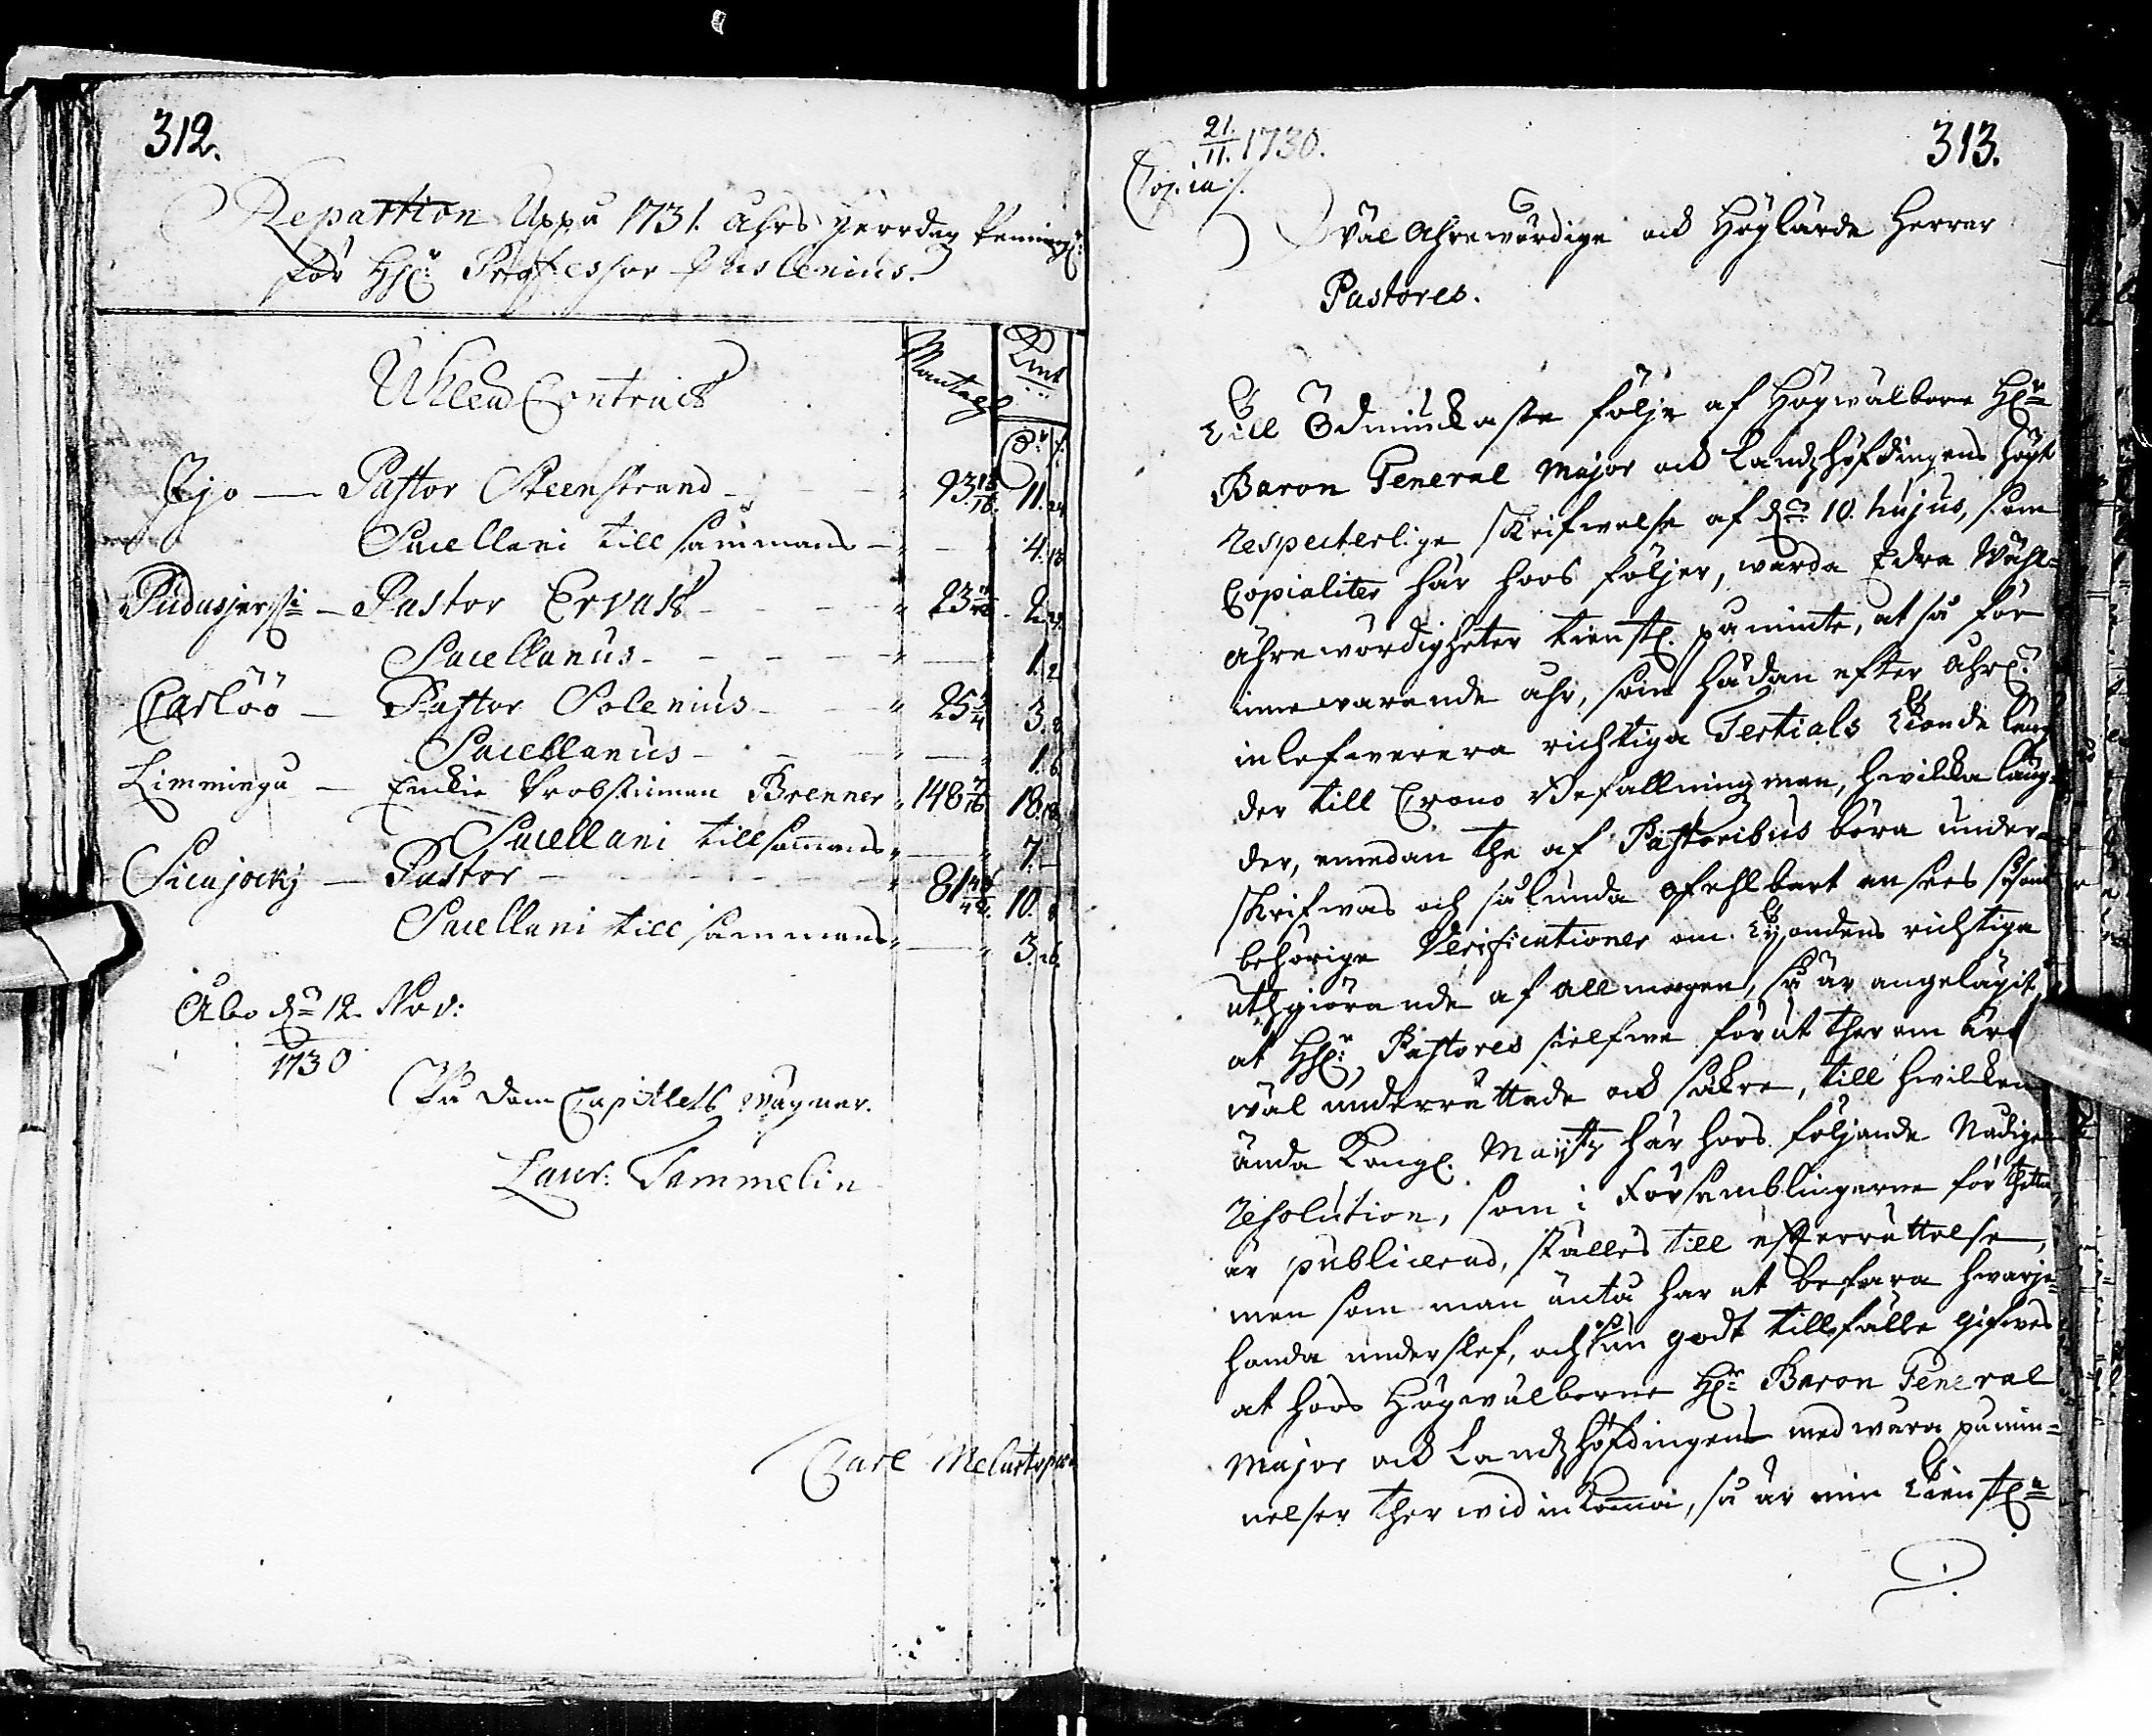 312.
Repartion Uppå 1731. Åhrs Herredag Penning:
för HH: Professor Juslenius.
Uhleå Contract
Mantahl
Kmt
Ijo — Pastor Steenstrand 93 11.24
Sacellani till sammans 4.
Pudasjerfwi — Pastor Ervast 23 2.
Sacellanus 1.2
Carlöö — Pastor Polenius 25 3.
Sacellanus 1.6
Limmingå — Enckie Probstinnan Brenner 148 18.
Sacellani till sammans 7.—
Sicajocki — Pastor 81 10.
Sacellani till sammans 3.26.
Åbo d. 12. Nov:
1730
På Dom Capitlets wägnar.
Laur: Tammelin
Carl Melartopæus
21.
11. 1730.
313.
Copia:
Wäl Ährewördige och Höglärde Herrar
Pastores.
Till Ödmiukaste följe af Högwälborne Hr
Baron General Major och Landzhöfdingens högt
respecterlige skrifwelse af d. 10. hujus, som
Copialiter här hoos följer, warda Edra Wähl-
ährewördigheter tienstl. påminte, at så för
innewarande åhr, som hädan efter åhrl.
inlefwerera richtiga Tertials Tionde läng-
der till Crono Befallningzman, hwilka läng-
der, emedan the af Pastoribus böra under-
skrifwas och således ofehlbart ansees såsom
behörige Verificationer om Tijondens richtiga
uthgiörande af allmogen, så är angelägit,
at HH: Pastores sielfwe förut ther om äro
wäl underrättade och säkre, till hwilken
ända Kongl. Maij:tz här hoos följande Nådige
resolution, som i Församblingarne för thetta
är publicerad, ställes till efterrättelse,
men som man ändå har at befara hwarje-
handa underslef, och kan godt tillfälle gifwes
at hoos Högwälborne Hr Baron General
Major och Landzhöfdingen med wåra påmin-
nelser ther wid inkomma, så är min tienstl.